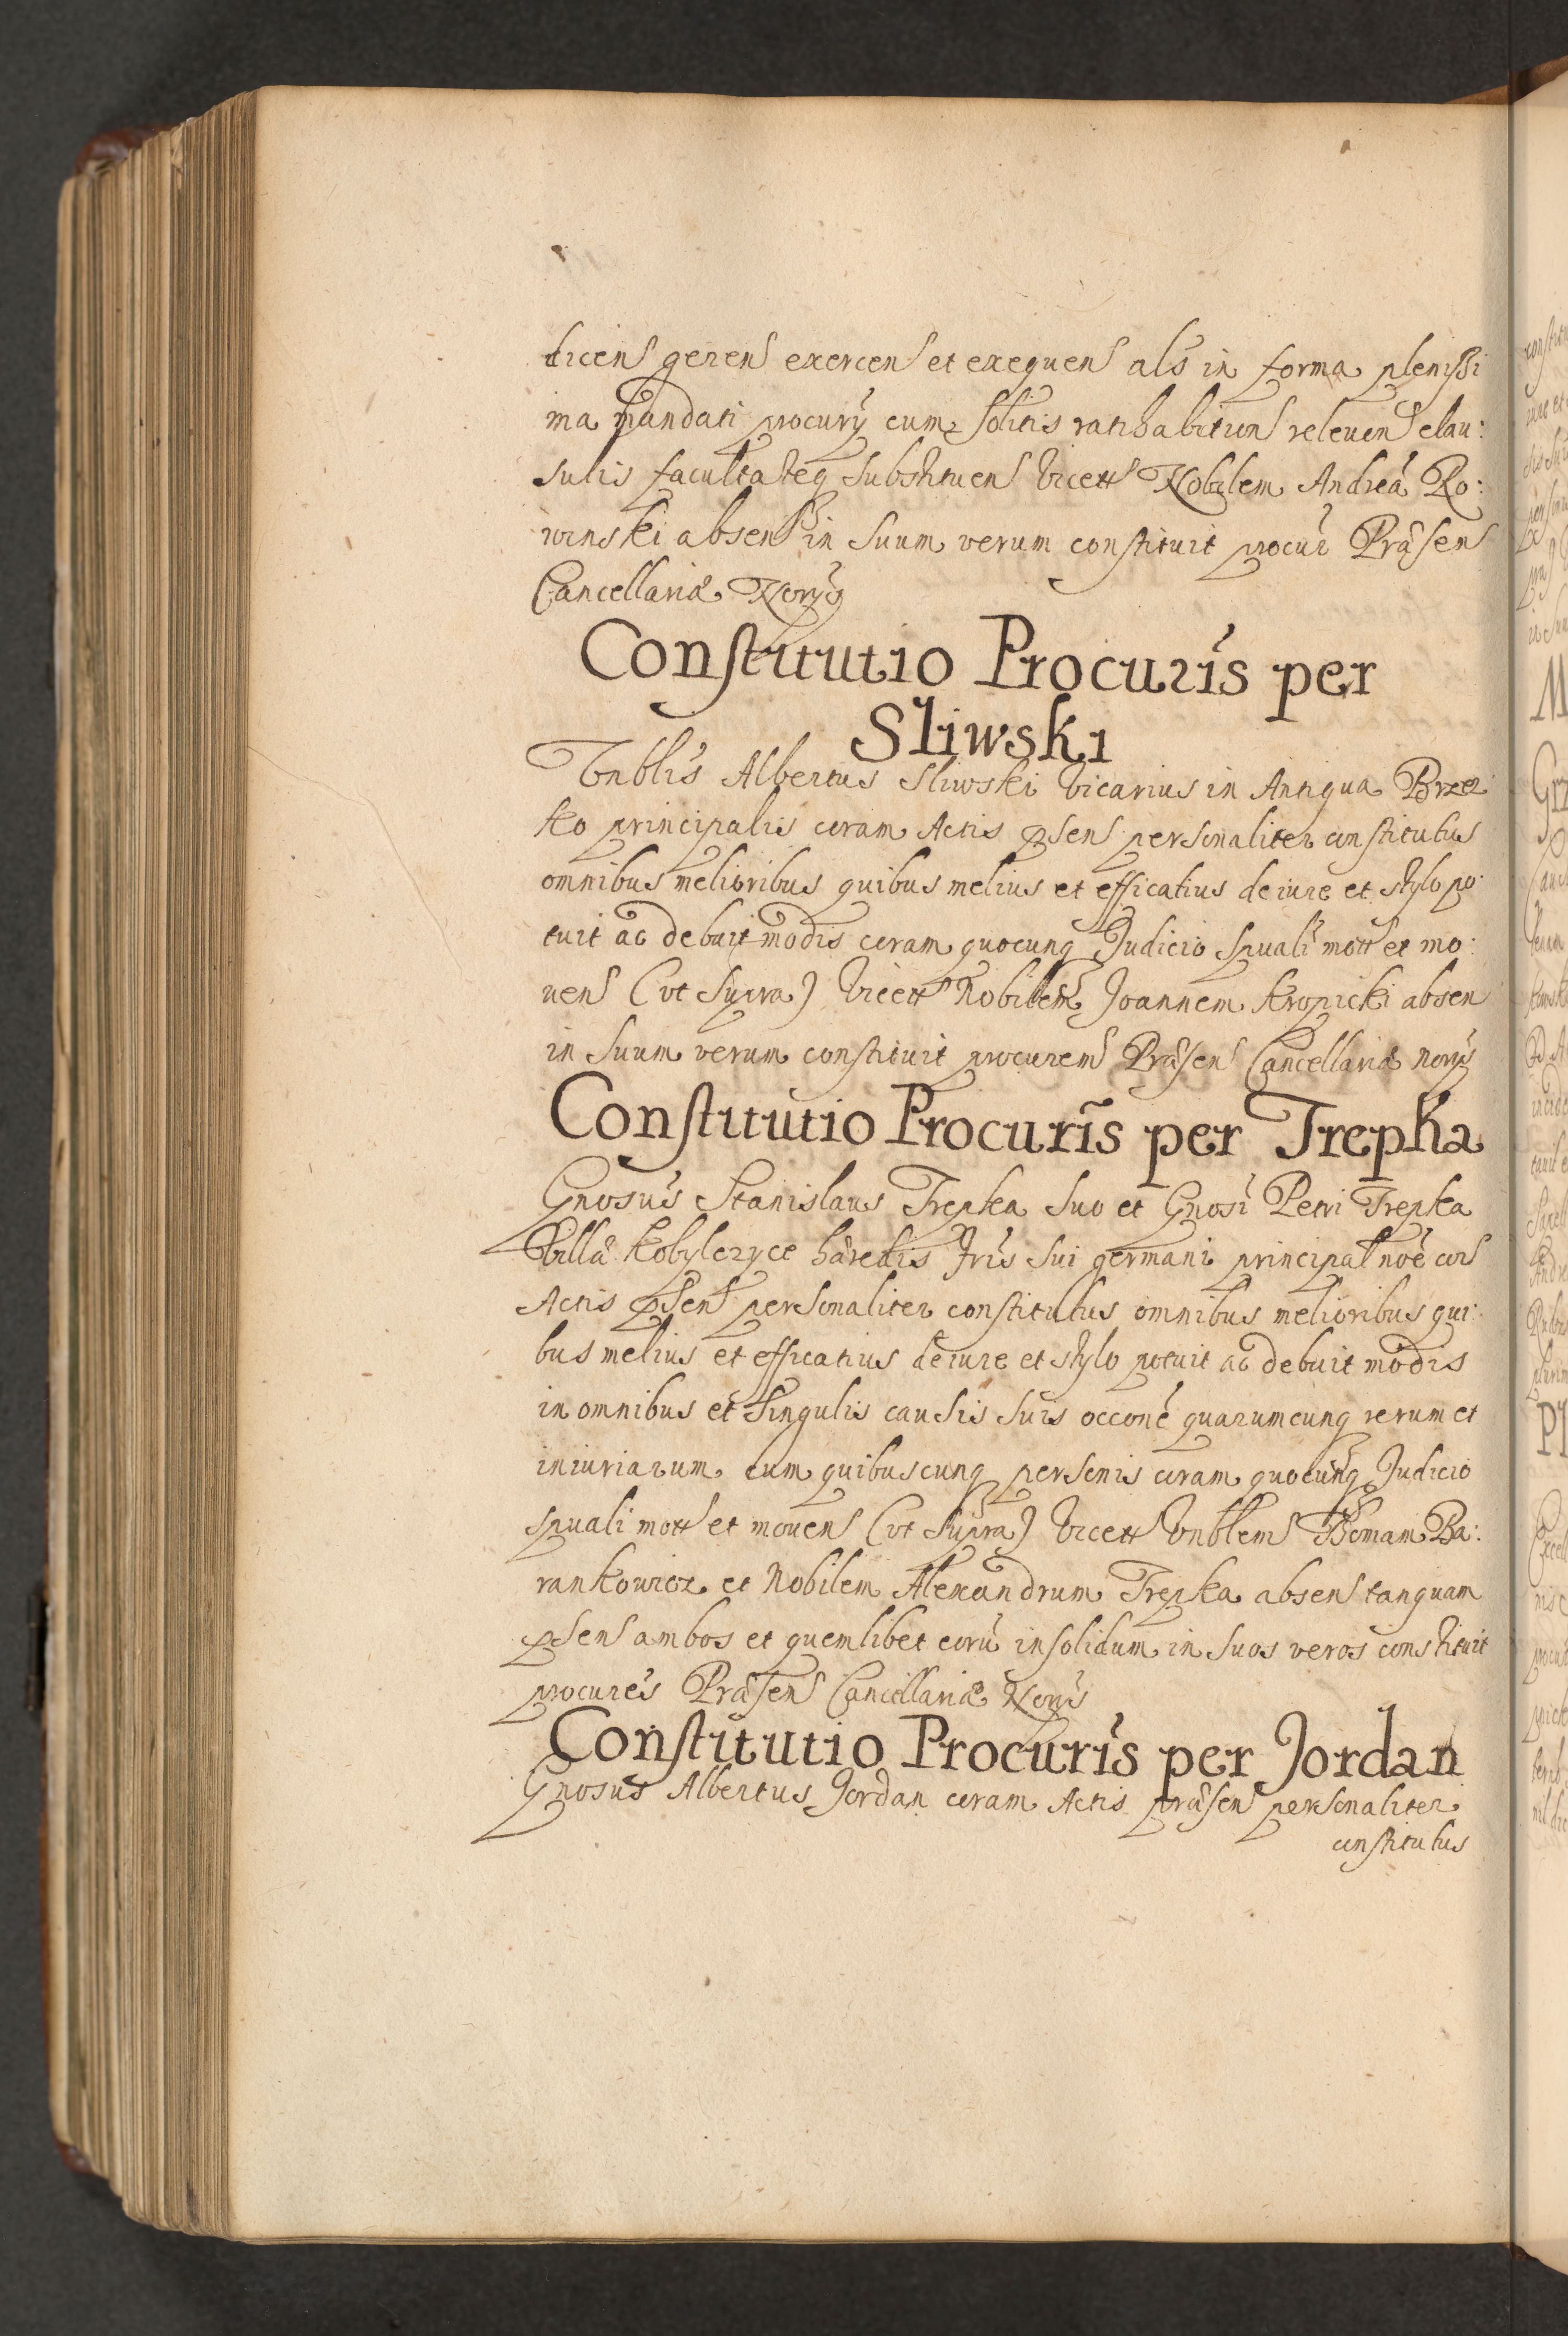 dicens gerens exercens et exequens als in forma plenissi
ma mandati procurÿ cum solitis ratihabitions relevens clau:
sulis facultateq substituens Vicett Nobilem Andreã Ro:
winski absens in suum verum constituit procur Præsens
Cancellariæ Norÿs
Constitutio Procuris per
Sliwski
Vnblis Albertus Sliwski Vicarius in Antiqua Brzez
ko principalis coram Actis psens personaliter constitutus
omnibus melioribus quibus melius et efficatius de iure et stylo po:
tuit ac debuit modis coram quocunq Judicio spuali mott et mo:
uens (vt supra) Vicett Nobilem Joannem Kropicki absen
in suum verum constituit procurems Præsens Cancellariæ norÿs
Constitutio Procuris per Trepka
Gnosus Stanislaus Trepka suo et Gnosi Petri Trepka
Villæ Kobylczyce hæredis Fris sui germani principal noe cors
Actis psens personaliter constitutus omnibus melioribus qui:
bus melius et efficatius de iure et stylo potuit ac debuit modis
in omnibus et singulis causis suis occone quarumcunq rerum et
iniuriarum cum quibuscunq personis coram quocunq Judicio
spuali mott et mouens (vt supra) Vicett Vnblems Thomam Ba:
rankowicz et Nobilem Alexandrum Trepka absens tanquam
psens ambos et quemlibet eorũ insolidum in suos veros constituit
procures Præsens Cancellariæ Noris
Constitutio Procuris per Jordan
Gnosus Albertus Jordan coram Actis præsens personaliter
constitutus